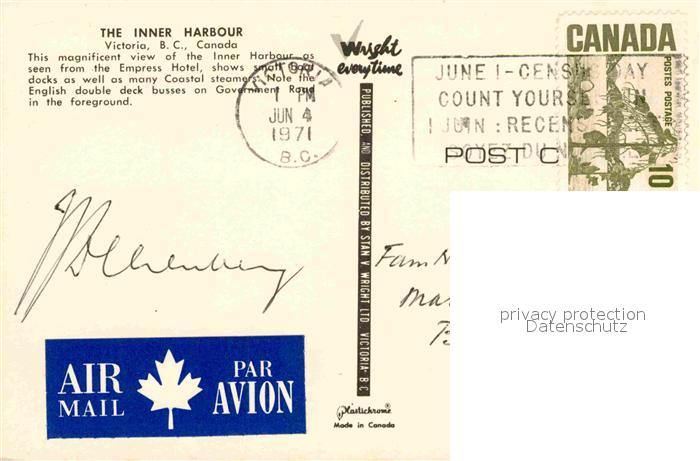 THE INNER HARBOUR
Victoria, B. C., Canada
This magnificent view of the Inner Harbour as
seen from the Empress Hotel, shows small
docks as well as many Coastal steamers. Note the
English double deck busses on Government Road
in the foreground.
VICTORIA
1 PM
JUN 4
1971
B.C.
Wright
everytime
JUNE 1 - CENSUS DAY
COUNT YOURSELF IN
1 JUIN : RECENS
SOYEZ DU N
CANADA
POSTES POSTAGE
10
POST C
PUBLISHED AND DISTRIBUTED BY STAN V. WRIGHT LTD. VICTORIA B C
Fam
Ma
privacy protection
Datenschutz
AIR MAIL
PAR AVION
Plastichrome®
Made in Canada